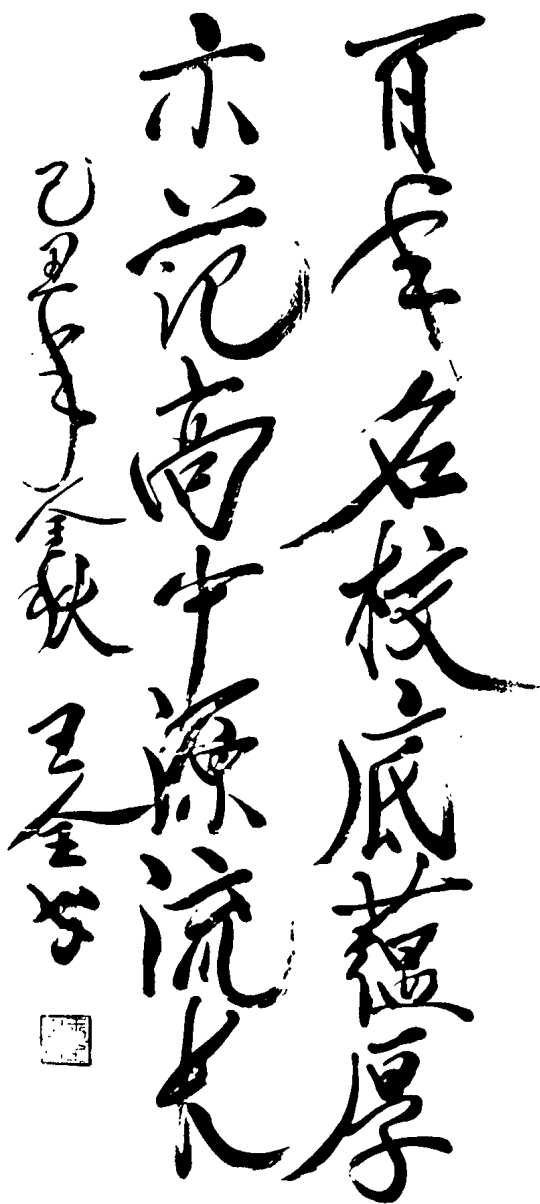 百年名校底蕴厚
示范高中源流长
己丑年金秋 王金